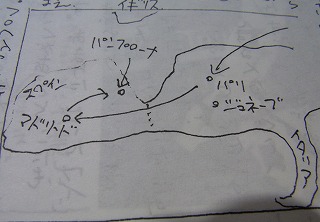 イギリス
パンプローナ
スペイン
パリ
ジュネーブ
マドリッド
イタリア